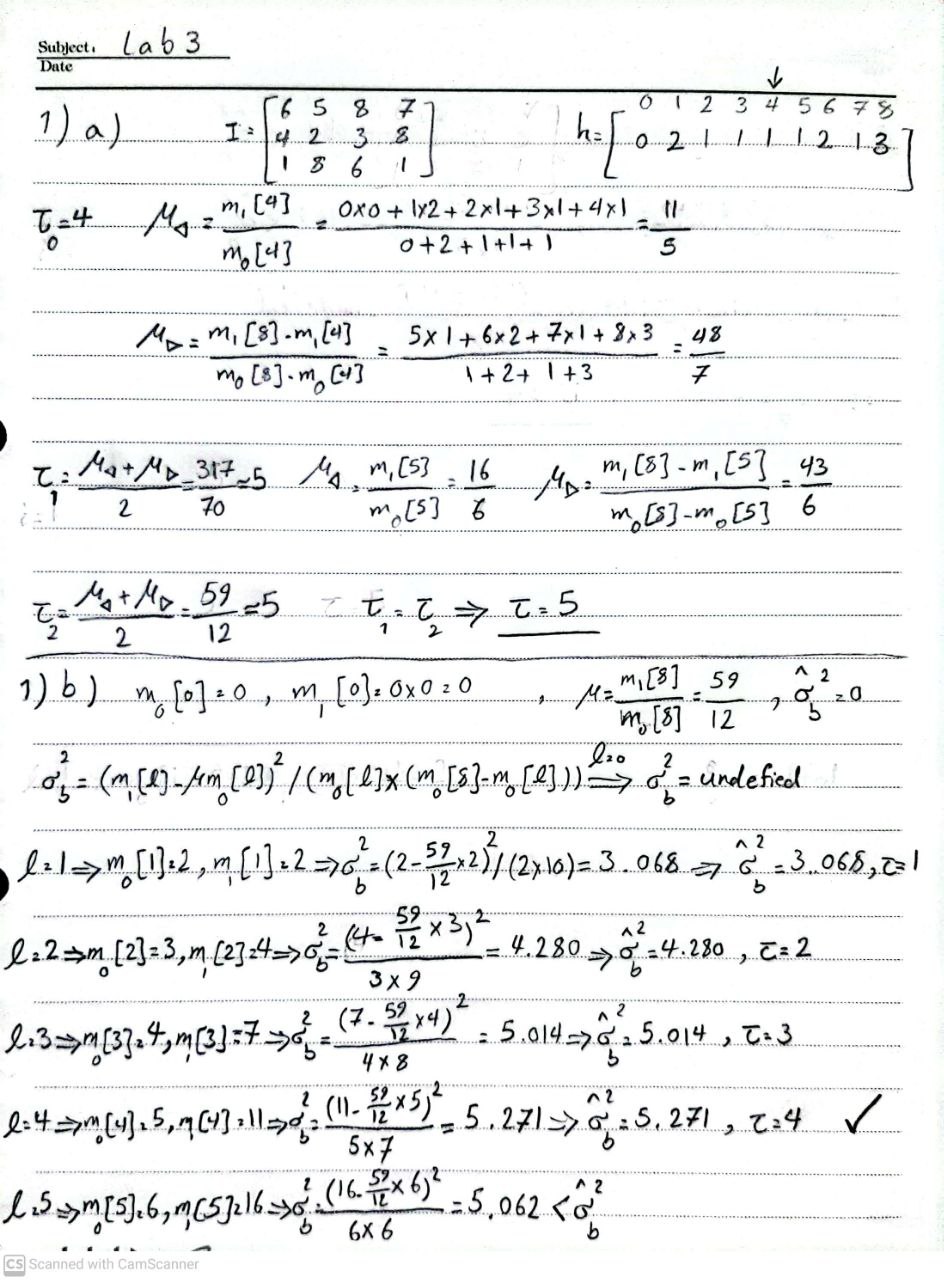 Subject. Lab 3
Date
↓
1) a) I = [6 5 8 7 h = [ 0 1 2 3 4 5 6 7 8
4 2 3 8 0 2 1 1 1 1 2 1 3 ]
1 8 6 1]
τ₀ = 4 μ◁ = m₁[4] / m₀[4] = (0×0 + 1×2 + 2×1 + 3×1 + 4×1) / (0 + 2 + 1 + 1 + 1) = 11/5
μ▷ = (m₁[8] - m₁[4]) / (m₀[8] - m₀[4]) = (5×1 + 6×2 + 7×1 + 8×3) / (1 + 2 + 1 + 3) = 48/7
τ₁ = (μ◁ + μ▷)/2 = 317/70 ≈ 5 μ◁ = m₁[5] / m₀[5] = 16/6 μ▷ = (m₁[8] - m₁[5]) / (m₀[8] - m₀[5]) = 43/6
τ₂ = (μ◁ + μ▷)/2 = 59/12 ≈ 5 τ₁ = τ₂ ⇒ τ = 5
1) b) m₀[0] = 0 , m₁[0] = 0×0 = 0 , μ = m₁[8] / m₀[8] = 59/12 , σ̂b² = 0
σb² = (m₁[l] - μm₀[l])² / (m₀[l] × (m₀[8] - m₀[l])) l=0 ⇒ σb² = undefied
l=1 ⇒ m₀[1] = 2, m₁[1] = 2 ⇒ σb² = (2 - 59/12 × 2)² / (2×10) = 3.068 ⇒ σ̂b² = 3.068, τ = 1
l=2 ⇒ m₀[2] = 3, m₁[2] = 4 ⇒ σb² = (4 - 59/12 × 3)² / (3×9) = 4.280 ⇒ σ̂b² = 4.280 , τ = 2
l=3 ⇒ m₀[3] = 4, m₁[3] = 7 ⇒ σb² = (7 - 59/12 × 4)² / (4×8) = 5.014 ⇒ σ̂b² = 5.014 , τ = 3
l=4 ⇒ m₀[4] = 5, m₁[4] = 11 ⇒ σb² = (11 - 59/12 × 5)² / (5×7) = 5.271 ⇒ σ̂b² = 5.271 , τ = 4 ✓
l=5 ⇒ m₀[5] = 6, m₁[5] = 16 ⇒ σb² = (16 - 59/12 × 6)² / (6×6) = 5.062 < σ̂b²
CS Scanned with CamScanner